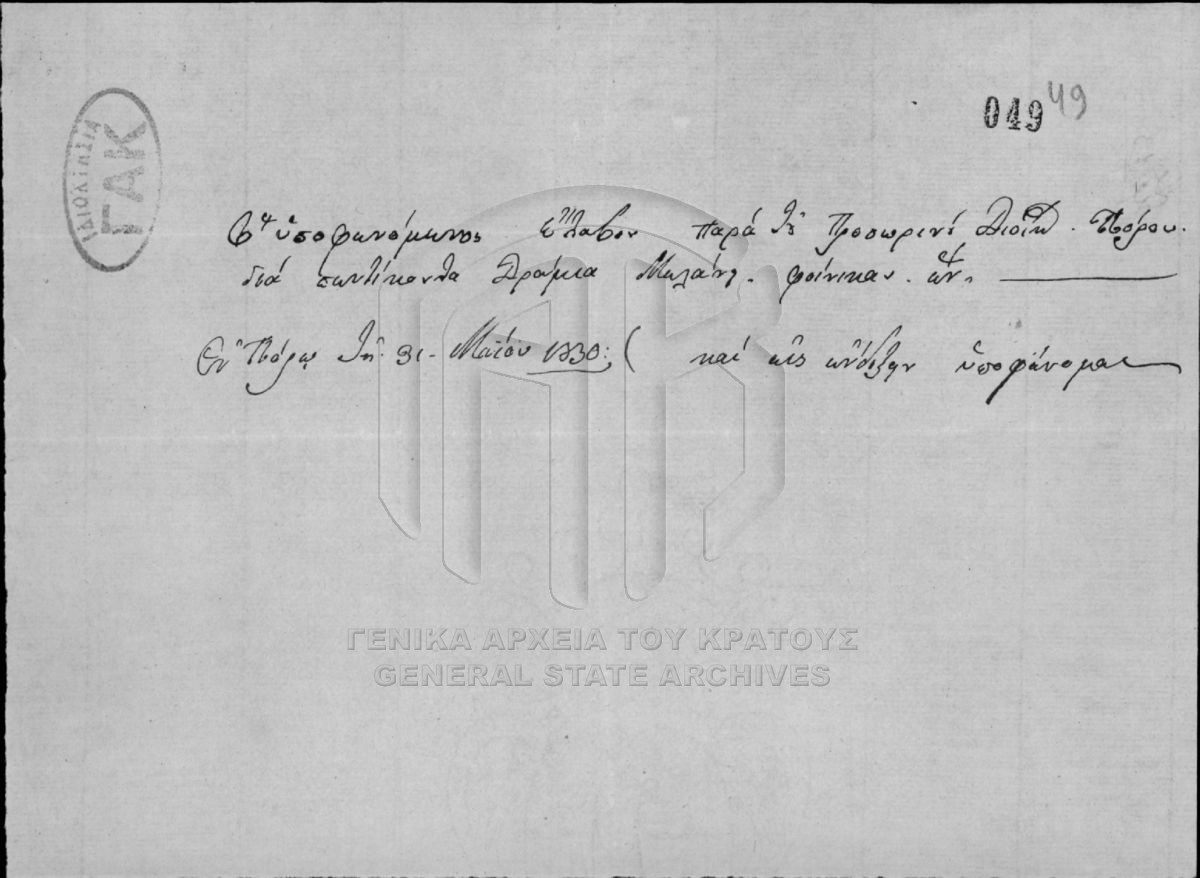 049 49
ΙΔΙΟΚΤΗΣΙΑ
ΓΑΚ
Ὁ ὑποφαινόμενος ἔλαβον παρὰ τ Προσωρινῆ Διοικ. Πόρου.
διὰ πενῆντα δράμια Μελάνη. φοίνικαν. ἕν.
Ἐν Πόρῳ τῇ 31 Μαΐου 1830: καὶ εἰς ἔνδειξιν ὑποφαίνομαι
ΓΕΝΙΚΑ ΑΡΧΕΙΑ ΤΟΥ ΚΡΑΤΟΥΣ
GENERAL STATE ARCHIVES